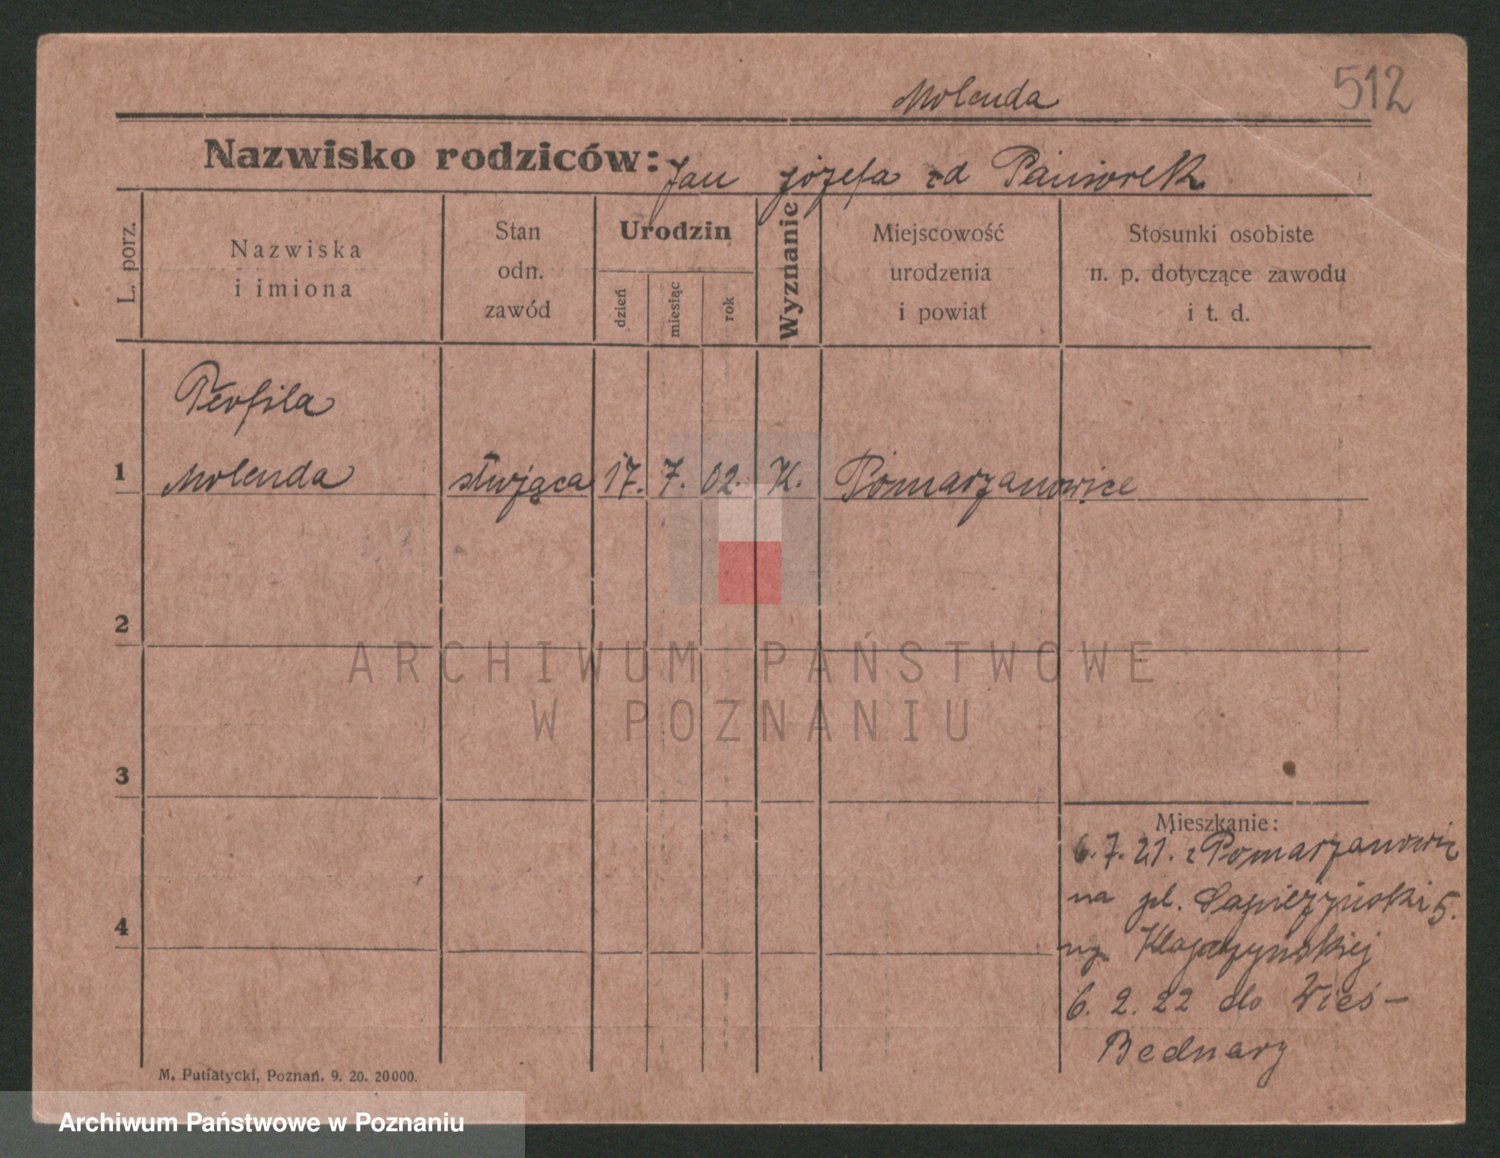 Molenda
512
Nazwisko rodziców: Jan józefa zd
L. porz.
Nazwiska
i imiona
Stan
odn.
zawód
Urodzin
dzień
miesiąc
rok
Wyznanie
Miejscowość
urodzenia
i powiat
Stosunki osobiste
n. p. dotyczące zawodu
i t. d.
Molenda
1 służąca 17. 7. 02. K. Pomarzanowice
2
3
4
Mieszkanie:
6. 7. 21. z Pomarzanowic
na pl. Sapieżyński 5.
6. 2. 22 do Wieś –
Bednary
M. Putiatycki, Poznań. 9. 20. 20000.
ARCHIWUM PAŃSTWOWE
W POZNANIU
Archiwum Państwowe w Poznaniu